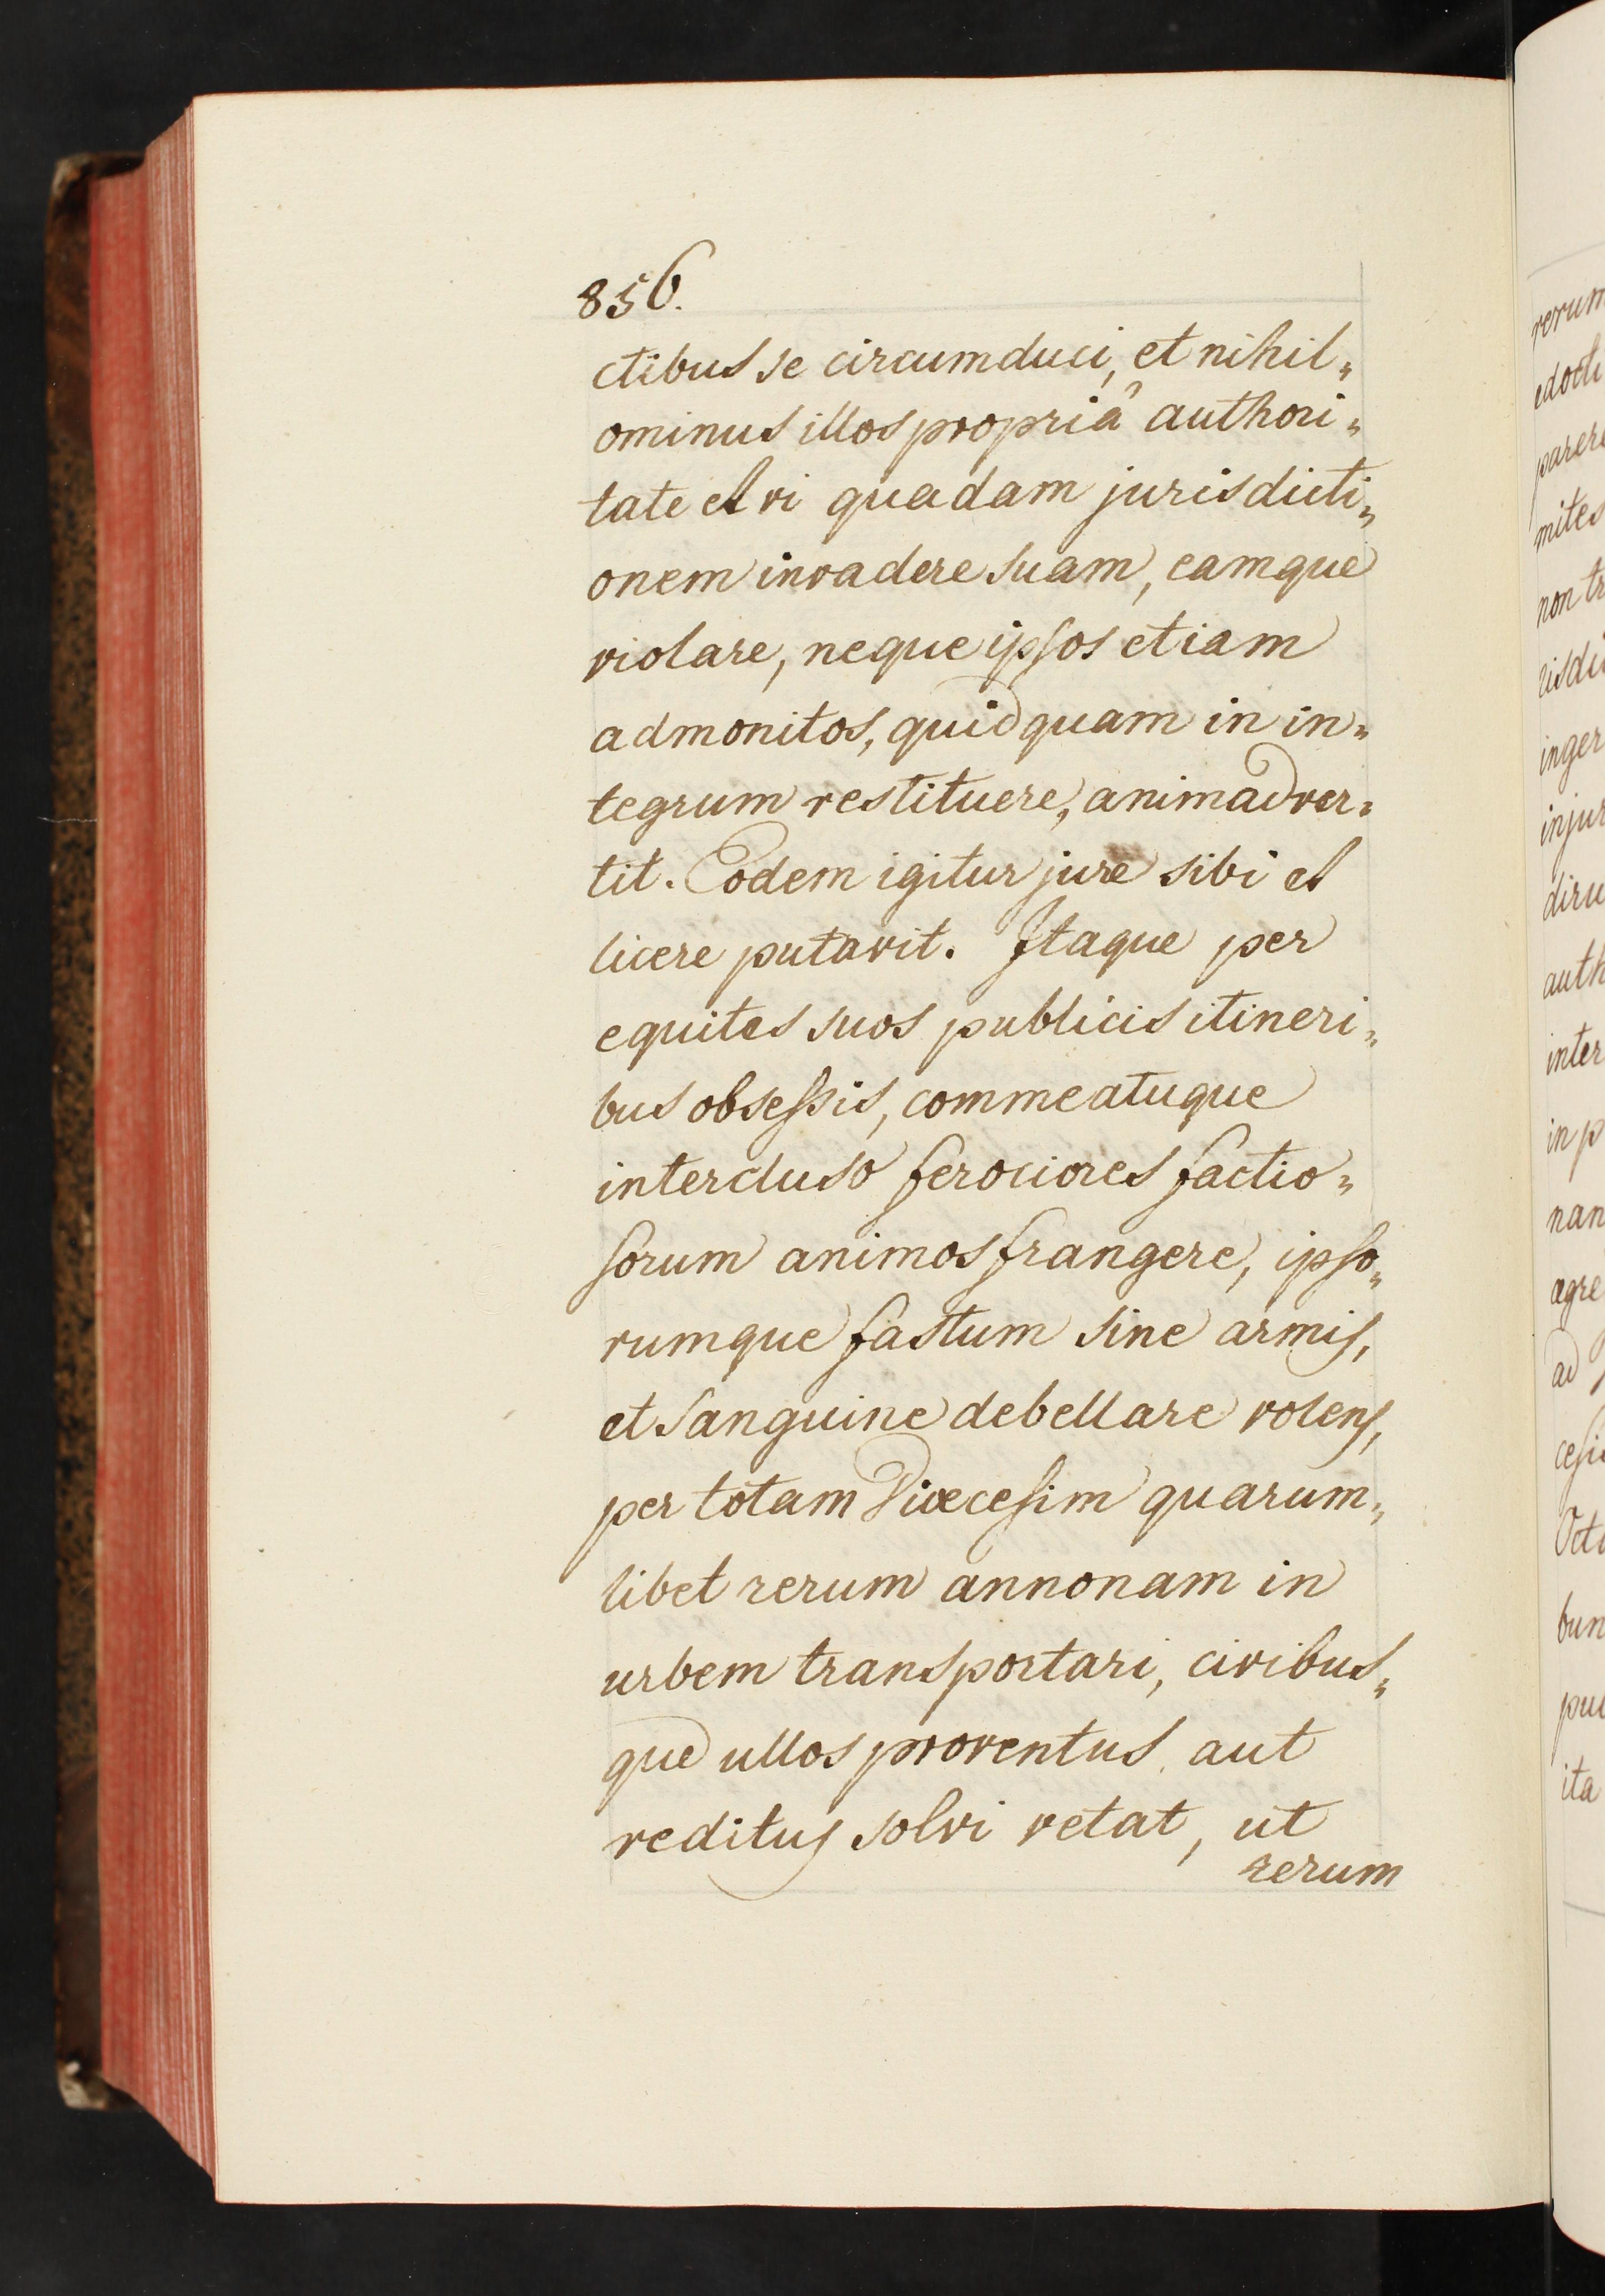 856.
ctibus se circumduci, et nihil„
ominus illos propriâ authori„
tate et vi quadam jurisdicti„
onem invadere suam, eamque
violare, neque ipsos etiam
admonitos, quidquam in in„
tegrum restituere, animadver„
tit. Eodem igitur jure sibi et
licere putavit. Itaque per
equites suos publicis itineri„
bus obsessis, commeatuque
intercluso ferociores factio„
sorum animos frangere, ipso„
rumque fastum sine armis,
et sanguine debellare volens,
per totam Diœcesim quarum„
libet rerum annonam in
urbem transportari, civibus„
que ullos proventus aut
reditus solvi vetat, ut
rerum
rerum
edocti
parere
mites
non tr
risdi
inger
injur
diru
auth
inter
in p
nan
ægre
ad
cesi
Oct
bun
pu
ita